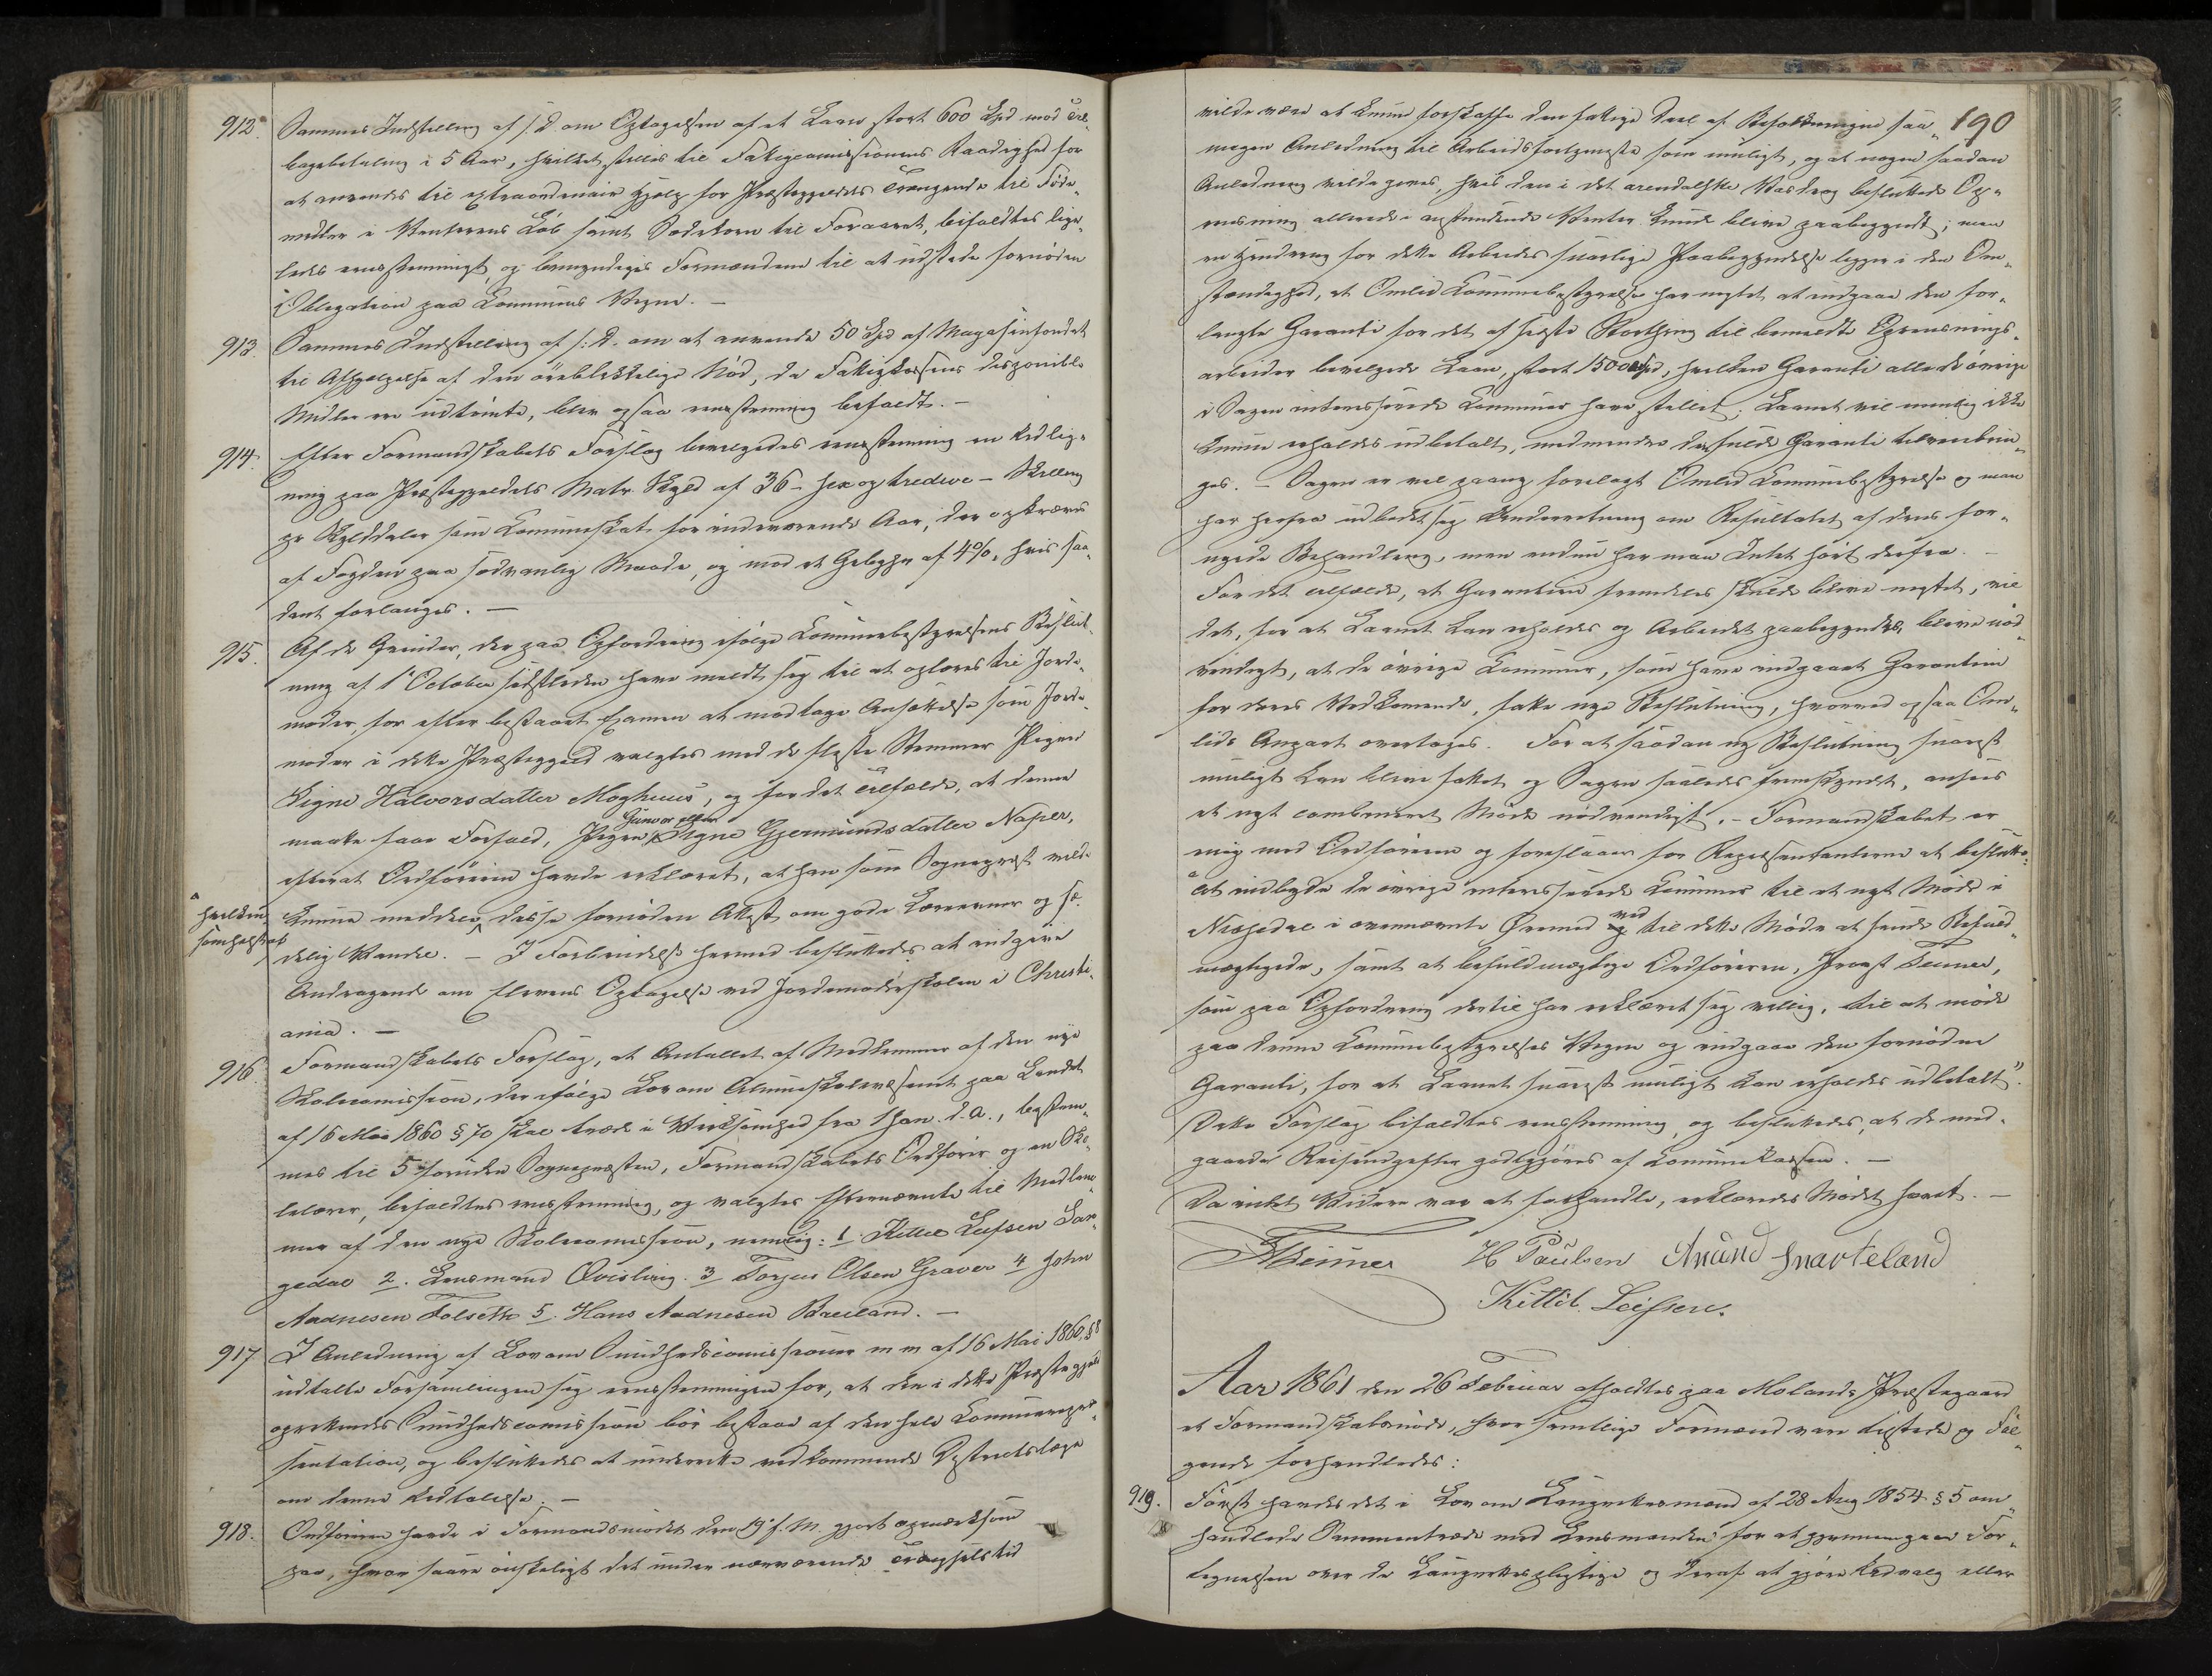 912. Sammes Indstilling af s. D. om Optagelsen af et Laan stort 600 Spd mod Til„
bagebetaling i 5 Aar, hvilket stilles til Fattigcomissionens Raadighed for
at anvendes til extraordinair Hjelp for Præstegjeldets Trængende til Føde„
midler i Vinterens Løb samt Sædekorn til Foraaret, bifaldtes lige„
ledes eenstemmigt, og bemyndiges Formændene til at udstede fornøden
Obligation paa Communens Vegne. —
913. Sammes Indstilling af s. D. om at anvende 50 Spd af Magasinfondet
til Afhjelpelse af den øieblikkelige Nød, da Fattigkassens disponible
Midler ere udtømte, blev ogsaa eenstemmig bifaldt. —
914. Efter Formandskabets Forslag bevilgedes eenstemmig en Udlig„
ning paa Præstegjeldets Matr. Skyld af 36 – sex og tredive – Skilling
pr Skylddaler som Communeskat for indeværende Aar, der opkræves
af Fogden paa sædvanlig Maade, og mod et Gebyhr af 4%, hvis saa„
dant forlanges. —
915. Af de Qvinder, der paa Opfordring ifølge Communebestyrelsens Beslut„
ning af 1 October sidstleden have meldt sig til at oplæres til Jorde„
moder, for efter bestaaet Examen at modtage Ansættelse som Jorde„
moder i dette Præstegjeld valgtes med de fleste Stemmer Pigen
Signe Halvorsdatter Moghuus, og for det Tilfælde, at denne
maatte faae Forfald, Pigen Gunvor eller Signe Gjermundsdatter Naper,
efterat Ordføreren havde erklæret, at han som Sogneprest vilde
kunne meddele hvilkensomhelst af disse fornøden Attest om gode Læreevner og sæ„
delig Vandel. — I Forbindelse hermed besluttedes at indgive
Andragende om Elevens Optagelse ved Jordemoderskolen i Christi„
ania. —
916. Formandskabets Forslag, at Antallet af Medlemmer af den nye
Skolecomission, der ifølge Lov om Almueskolevæsenet paa Landet
af 16 Mai 1860 § 70 skal træde i Virksomhed fra 1 Jan. d. A., bestem„
mes til 5 foruden Sognepræsten, Formandskabets Ordfører og en Sko„
lelærer, bifaldtes eenstemmig, og valgtes Efternævnte til Medlem„
mer af den nye Skolecomission, nemlig: 1 Kittil Leifsen Lar„
gedal 2. Lensmand Qvisling. 3 Torjus Olsen Graver 4 John
Aadnesen Folseth 5. Hans Aadnesen Bræiland. —
917 I Anledning af Lov om Sundhedscomissioner m m af 16 Mai 1860, § 8
udtalte Forsamlingen sig eenstemmigen for, at den i dette Præstegjeld
oprettende Sundhedscomission bør bestaae af den hele Communerepræ„
sentation, og besluttedes at underrette vedkommende Districtslæge
om denne Udtalelse. —
918. Ordføreren havde i Formandsmødet den 19 f. M. gjort opmærksom
paa, hvor saare ønskeligt det under nærværende Trængselstid
190
vilde være at kunne forskaffe den fattige Deel af Befolkningen saa„
megen Anledning til Arbeidsfortjeneste som muligt, og at nogen saadan
Anledning vilde gives, hvis den i det arendalske Vasdrag besluttede Op„
rensning allerede i anstundende Vinter kunde blive paabegyndt; men
en Hindring for dette Arbeides snarlige Paabegyndelse ligger i den Om„
stændighed, at Omlid Communebestyrelse har negtet at indgaae den for„
langte Garanti for det af sidste Storthing til bemeldte Oprensnings„
arbeider bevilgede Laan, stort 15000 Spd, hvilken Garanti alle de øvrige
i Sagen interesserede Communer have stillet; Laanet vil nemlig ikke
kunne erholdes udbetalt, medmindre den fulde Garanti tilveiebrin„
ges. — Sagen er vel paany forelagt Omlid Communebestyrelse og man
har herfra udbedet sig Underretning om Resultatet af dens for„
nyede Behandling, men endnu har man Intet hørt derfra. —
For det Tilfælde, at Garantien fremdeles skulde blive negtet, vil
det, for at Laanet kan erholdes og Arbeidet paabegyndes, blive nød„
vendigt, at de øvrige Communer, som have indgaaet Garantien
for deres Vedkommende, fatte nye Beslutning, hvorved ogsaa Om„
lids Anpart overtages. For at saadan ny Beslutning snarest
muligt kan blive fattet og Sagen saaledes fremskyndet, ansees
et nyt combineret Møde nødvendigt. — Formandskabet er
enig med Ordføreren og foreslaaer for Repræsentanterne at beslutte:
"At indbyde de øvrige interesserede Communer til et nyt Møde i
Nissedal i ovennævnte Øiemed og ved til dette Møde at sende Befuld„
mægtigede, samt at befuldmægtige Ordføreren, Provst Steiner,
som paa Opfordring dertil har erklæret sig villig, til at møde
paa denne Communebestyrelses Vegne og indgaae den fornødne
Garanti, for at Laanet snarest muligt kan erholdes udbetalt".
Dette Forslag bifaldtes eenstemmig, og besluttedes, at de med„
gaaende Reiseudgifter godtgjøres af Communekassen. —
Da intet Videre var at forhandle, erklæredes Mødet hævet. —
Steiner H Poulsen Anund Snarteland
Kittil Leifsen.
Aar 1861 den 26 Februar afholdtes paa Molands Præstegaard
et Formandskabsmøde, hvor samtlige Formænd vare tilstede og Føl„
gende forhandledes:
919. Først havdes det i Lov om Lægeskesmænd af 28 Aug 1854 § 5 om„
handlede Sammentræde med Lensmanden for at gjennemgaae For„
tegnelsen over de pligtige og deraf at gjøre Udvalg eller